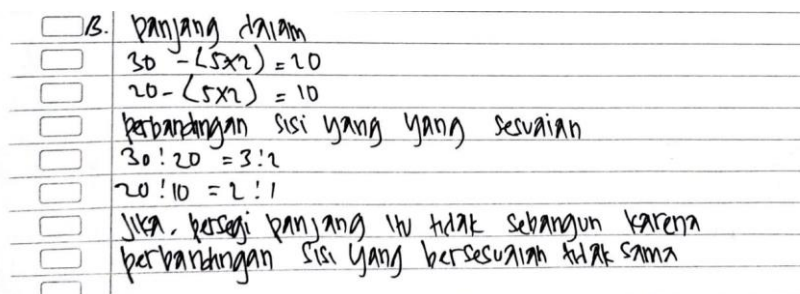 B. panjang dalam
30 - (5x2) = 20
20 - (5x2) = 10
perbandingan sisi yang yang sesuaian
30 : 20 = 3 : 2
20 : 10 = 2 : 1
Jika, persegi panjang itu tidak sebangun karena
perbandingan sisi yang bersesuaian tidak sama